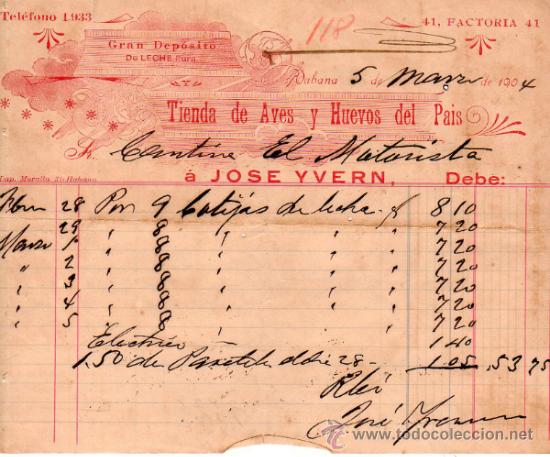 Teléfono 1.933
118
41, FACTORIA 41
Gran Depósito
De LECHE Pura
Habana 5 de Marzo de 1904
Tienda de Aves y Huevos del Pais
Sr. Cantina El Motorista
Imp. Morells Habana
á JOSE YVERN, Debe:
28 Por 9 botijas de leche 8 10
29 8 " " " 7 20
Marzo 1 8 " " " 7 20
" 2 8 " " " 7 20
" 3 8 " " " 7 20
" 4 8 " " " 7 20
" 5 8 " " " 7 20
1 40
1.50 de dia 28 - 1 05 53 75
José Yvern
www.todocoleccion.net